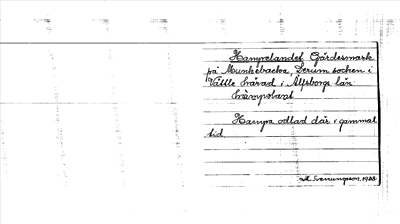 Hampelandet Gärdesmark
på Munkebacka, Lerum socken i
Vättle härad i Älfsborgs län
Hampa odlad där i gammal
tid
M. Svenungsson, 1923